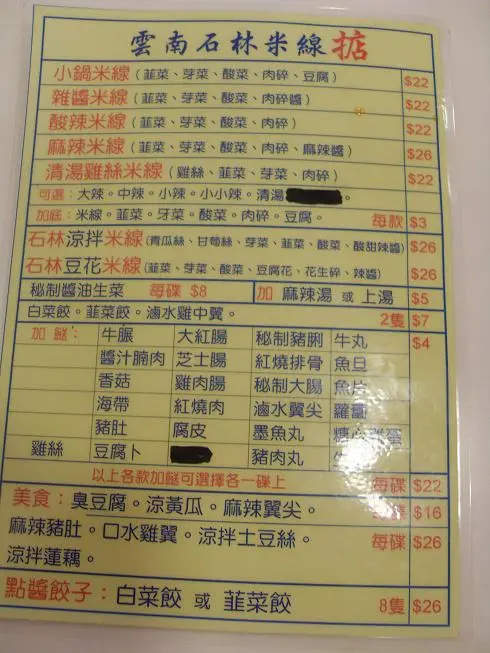 雲南石林米線掂
小鍋米線(韮菜、芽菜、酸菜、肉碎、豆腐) $22
雜醬米線(韮菜、芽菜、酸菜、肉碎醬) $22
酸辣米線(韮菜、芽菜、酸菜、肉碎) $22
麻辣米線(韮菜、芽菜、酸菜、肉碎、麻辣醬) $26
清湯雞絲米線(雞絲、韮菜、芽菜、肉碎) $22
可選:大辣。中辣。小辣。小小辣。清湯 。
加底:米線。韮菜。牙菜。酸菜。肉碎。豆腐。 每款 $3
石林涼拌米線(青瓜絲、甘荀絲、芽菜、韮菜、酸菜、酸甜辣醬) $26
石林豆花米線(韮菜、芽菜、酸菜、豆腐花、花生碎、辣醬) $26
秘制醬油生菜 每碟 $8 加 麻辣湯 或 上湯 $5
白菜餃。韮菜餃。滷水雞中翼。 2隻 $7
加餸: 牛𦟌 大紅腸 秘制豬脷 牛丸 $4
醬汁腩肉 芝士腸 紅燒排骨 魚旦
香菇 雞肉腸 秘制大腸 魚片
海帶 紅燒肉 滷水翼尖 羅蔔
豬肚 腐皮 墨魚丸 糖心雞蛋
雞絲 豆腐卜 豬肉丸
以上各款加餸可選擇各一碟上 每碟 $22
美食:臭豆腐。涼黃瓜。麻辣翼尖。 $16
麻辣豬肚。口水雞翼。涼拌土豆絲。 每碟 $26
涼拌蓮藕。
點醬餃子:白菜餃 或 韮菜餃 8隻 $26